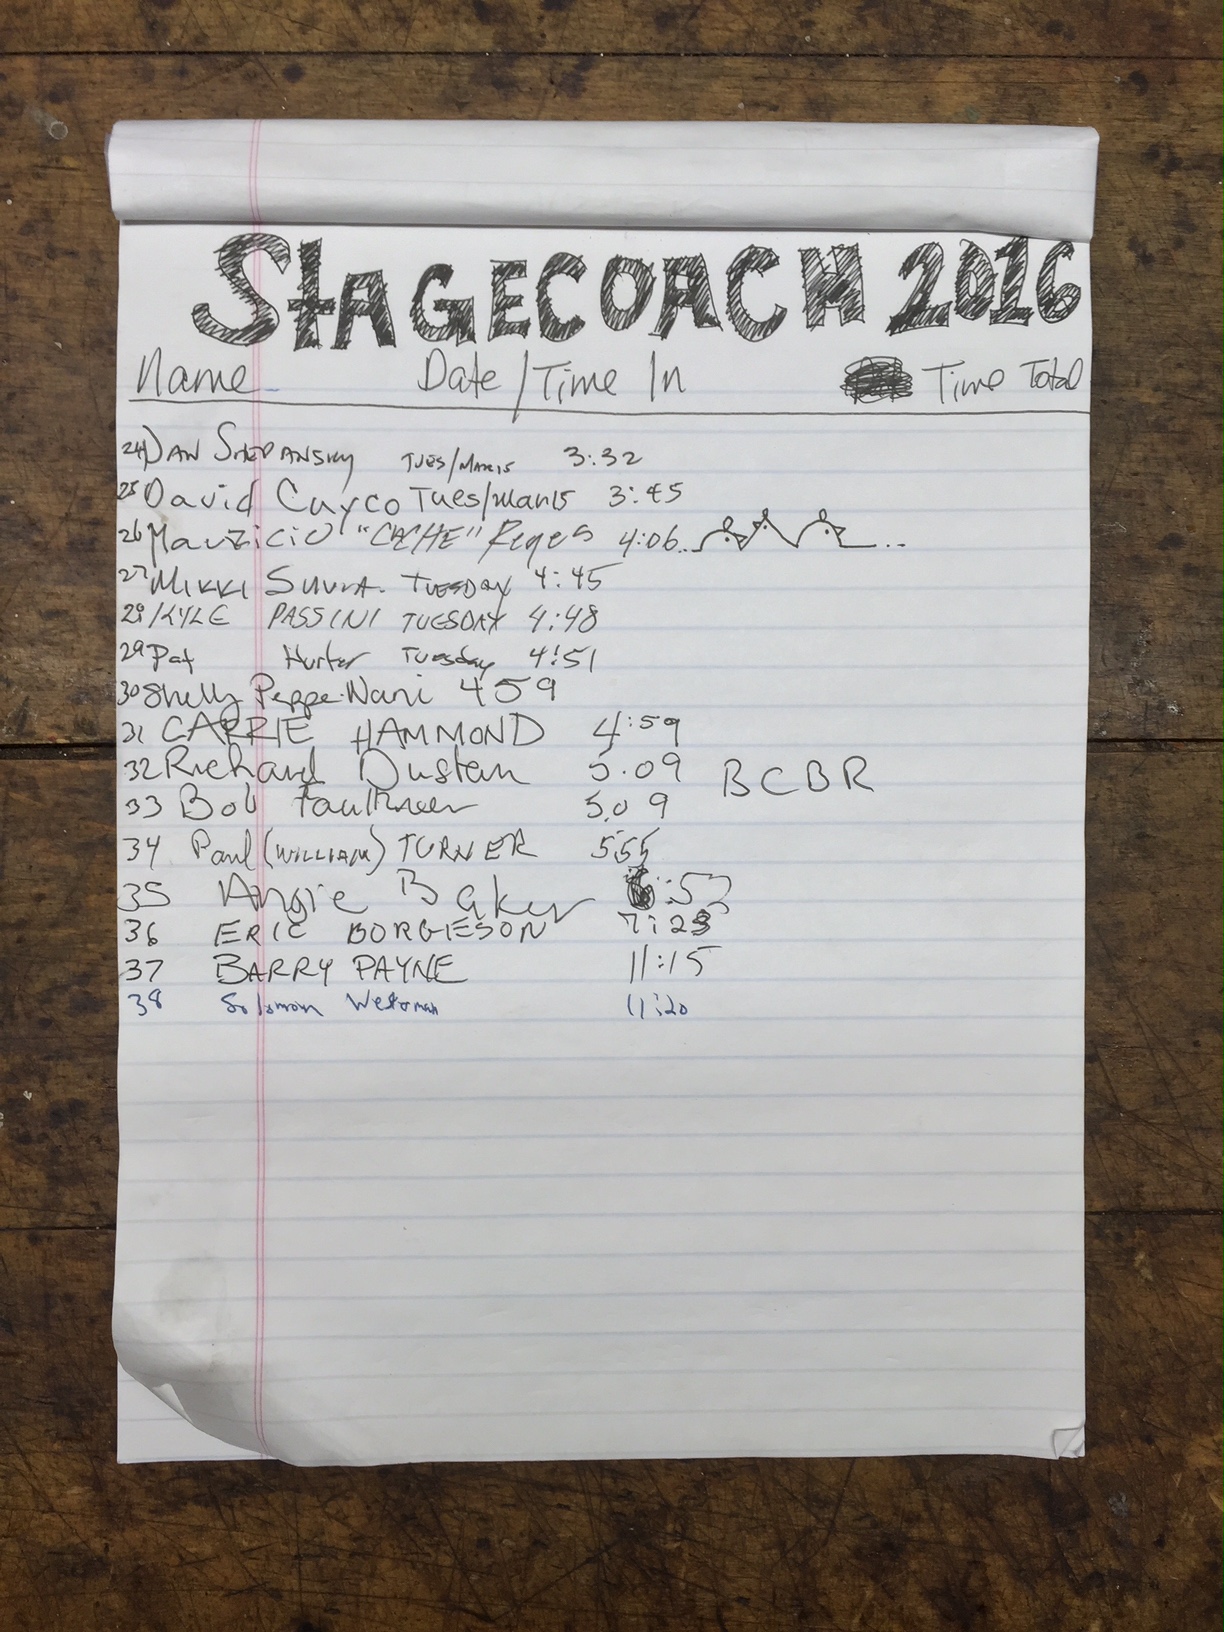 STAGECOACH 2016
Name Date/Time In Time Total
24 DAN STEPANSKY TUES/MAR15 3:32
25 David Cuyco Tues/Mar15 3:45
26 Mauricio "CACHE" Reyes 4:06...
27 MIKKI TUESDAY 4:45
28 KYLE PASSINI TUESDAY 4:48
29 Pat Hurter Tuesday 4:51
30 Shelly Peppe-Nani 459
31 CARRIE HAMMOND 4:59
32 Richard Dustan 5.09 BCBR
33 Bob Faulkner 5.09
34 Paul (WILLIAM) TURNER 5:55
35 Angie Baker 6:52
36 ERIC BORGIESON 7:23
37 BARRY PAYNE 11:15
38 Solomon Westerman 11:20